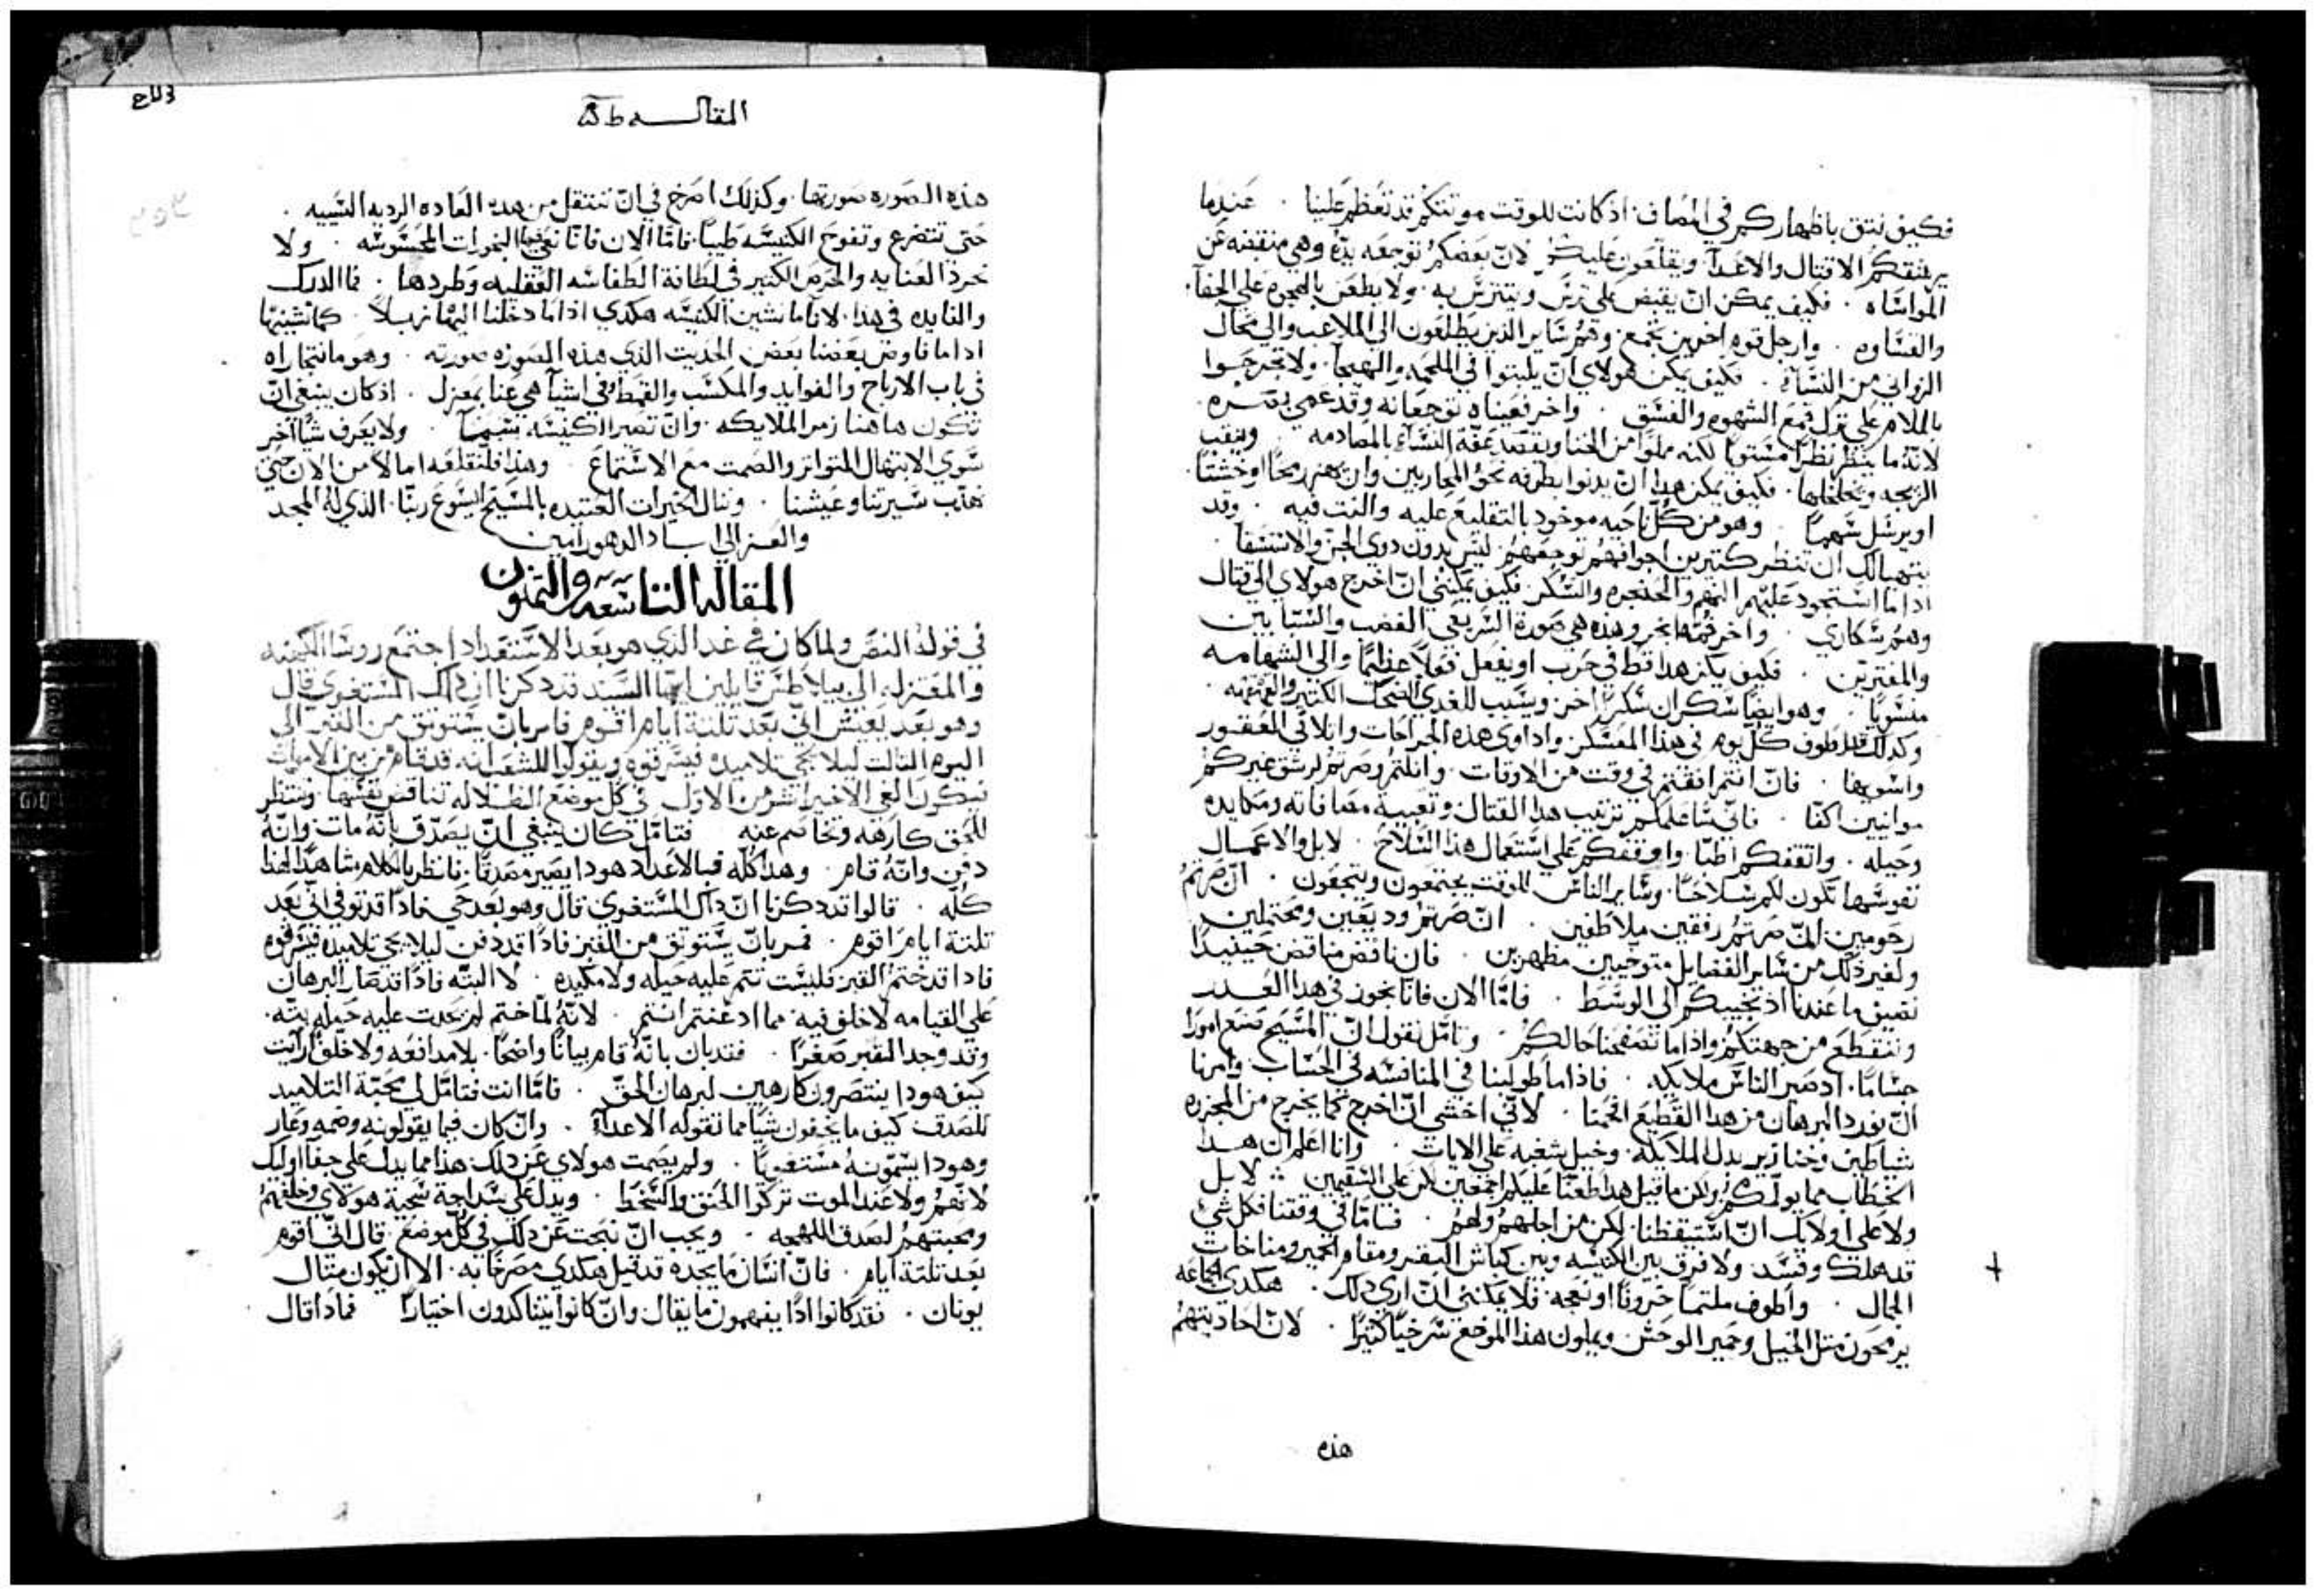 فكيف نتق باظهاركم في المصاف. اذ كانت للوقت موتتكم قد تعظم علينا. عندما
يرشقكم الاقتال والاعدآ ويقلعون عليكم لان بعضكم توجعه يده وهي منقبضه عن
المواساه. فكيف يمكن ان يقبض على ترس ويتترس به. ولا يطعن بالهجوم على الجفآ.
والقساوه. وارجل قوم اخرين تجمع وهم ساير الذين يطلعون الى الملاعب والى محال
الزواني من النسآ. فكيف يمكن هولاي ان يلبتوا في الملحمه والهيجآ. ولا تجرحوا
بالملام على ترك قمع الشهوه والفسق. واخر فعيناه توجعانه وقد عمي بصره.
لانه ما ينظر نظرًا مستويًا لكنه مملوًا من الخنا ويقصد عفة النسآ بالمصادمه. ويتقب
الزيجه ويخلخلها. فكيف يمكن هدا ان يدنوا بطرفه نحو المحاربين وان يهز رمحًا او خشتًا.
او يرشل سهمًا. وهو من كل ناحيه موخود بالتقليع عليه والنت فيه. وقد
يتهيالك ان تنظر كتيرين اجوافهم توجعهم ليس بدون دوي الجبن والاستسقا.
اداما استجود عليهم النهم والحنجره والسكر فكيف يمكنني ان اخرج هولاي الى قتال
وهم سكارى. واخر فمه ابخر وهذه هي صورة السريعي الغضب والسبابين
والمفترين. فكيف يكن هدا قط في حرب او يفعل فعلاً عظيمًا والى الشهامه
منسوبًا. وهو ايضًا سكران سكرًا اخر ويسبب للغدى الضحك الكتير والقهقهه.
وكدلك اطوف كل يوم في هذا المعسكر واداوي هذه الجراحات واتلافى العقور
واسويها. فان انتم افقتم في وقت من الاوقات. وابلتم وصرتم لرشق غيركم
موانيين اكفآ. فاني ساعلمكم ترتيب هدا القتال وتعبية مصافاته ومكايده
وحيله. واتقفكم اطبآ واوقفكم على استعمال هذا السلاح. لا بل والاعمال
نفوسها تكون لكم سلاحًا. وساير الناس للوقت يجتمعون ويتجعون. ان صرتم
رحومين. ان صرتم رفقين ملاطفين. ان صرتم وديعين ومحتملين
ولغير ذلك من ساير الفضايل متوخيين مظهرين. فان ناقض مناقض حينيدًا
نضيف ما عندنا اذ نجيبكم الى الوسط. فامّا الان فانا نخور في هدا العدد
وننقطع من جهتكم واذاما تصفحنا حالكم. وتامل نقول ان المسيح صنع امورًا
جسامًا. اد صير الناس ملايكه. فاذاما طولبنا في المنافسه في الحساب. وامرنا
ان نورد البرهان من هدا القطيع افحمنا. لاني اخشى ان اخرج كما يخرج من المجزره
شياطين وخنازير بدل الملايكه. وخيل شغبه على الايات. وانا اعلم ان هدا
الخطاب مما يولمكم ولكن ما قيل هدا طعنًا عليكم اجمعين لكن على السقيمين. لا بل
ولا على اولايك ان استيقظنا. لكن من اجلهم ولهم. فامّا في وقتنا فكل شي
قد هلك وفسد. ولا فرق بين الكنيسه وبين كباش البقر ومقام الحمير ومناخات
الجمال. واطوف ملتمسًا خروفًا او نعجه فلا يمكنني ان ارى ذلك. هكدى الجماعه
يرمحون متل الخيل وحمير الوحش ويملون هذا الموضع شرخيًا كثيرًا. لان احاديتهم
هذه
المقالــه ط
هذه الصوره صورتها. وكذلك اصرخ في ان ننتقل من هده العاده الرديه السيبه.
حتى تتضرع وتفوح الكنيسه طيبًا. فامّا الان فانا نعبي فيها البخورات المحسوسه. ولا
نجرد العنايه والحرص الكبير في لطافة الطفاسه العقليه وطردها. فما الدرك
والفايده في هذا. لانا ما نشين الكنيسه هكدي اذاما دخلنا اليها زبلاً. كما نشينها
اداما فاوض بعضنا بعض الحديت الذي هذه الصوره صورته. وهو ما نتجاراه
في باب الارباح والفوايد والمكسب والقحط وفي اشيآ هي عنا بمعزل. اذ كان ينبغي ان
تكون هاهنا زمر الملايكه. وان تصير الكنيسه سمآ. ولا يعرف شيًا اخر
سوى الابتهال المتواتر والصمت مع الاستماع. وهذا فلنقلعه امالا من الان حتى
نهذب سيرتنا وعيشنا. وننال الخيرات العتيده بالمسيح ايسوع ربنا. الذي له المجد
والعز الى اباد الدهور امين
المقالة التاسعه والتمنون
في قوله النص ولما كان في غد الدي هو بعد الاستعداد اجتمع روسآ الكهنه
والمعتزله الى بيلاطس قايلين ايها السيد قد دكرنا ان داك المستغوي قال
وهو بعد يعيش اني بعد تلتة ايام اقوم. فامر بان يستوتق من القبر الى
اليوم التالت ليلا يجي تلاميده فيسرقوه ويقولوا للشعب انه قد قام من بين الاموات
فيكون الغي الاخير اشر من الاول. في كل موضع الضلاله تناقض نفسها. وتنتظر
للحق كارهه وتخاصم عنه. فتامّل كان ينبغي ان يصدّق بانه مات وانه
دفن وانه قام. وهدا كله فبالاعداد هودا يصير مصدقًا. فانظر بالكلام شاهدًا لهدا
كله. قالوا قد دكرنا ان داك المستغوي قال وهو بعد حي فاذًا قد توفي اني بعد
تلتة ايام اقوم. فمر بان يستوتق من القبر فاذًا قد دفن. ليلا يجي تلاميده فيسرقوه
فادا قد ختم القبر فليست تتم عليه حيله ولا مكيده. لا البته فاذًا قد صار البرهان
على القيامه لا خلف فيه مما ادعنتم انتم. لانه لما ختم لم تحدت عليه حيله بته.
وقد وجدا القبر صفرًا. فقد بان بانه قام بيانًا واضحًا. بلا مدافعه ولا خلف. ارايت
كيف هودا ينتصرون كارهين لبرهان الحق. فامّا انت فتامّل لي محبة التلاميد
للصدق. كيف ما يخفون شيًا مما تقوله الاعدآء. وان كان فيما يقولونه وصمه وعار
وهودا يسمّونه مستغويًا. ولم يصمت هولاي عن دلك. هذا مما يدل على جفآ اوليك
لانهم ولا عند الموت تركوا الحنق والسخط. ويدل على سداجة سجية هولاي وخلقهم
ومحبتهم لصدق اللهجه. ويجب ان نبحت عن دلك في كل موضع. قال اني اقوم
بعد تلتة ايام. فان انسان ما يجده قد قيل هكدي مصرحًا به. الا ان يكون متال
يونان. فقد كانوا اذًا يفهمون ما يقال وان كانوا يتناكدون اختيارًا. فماذا قال